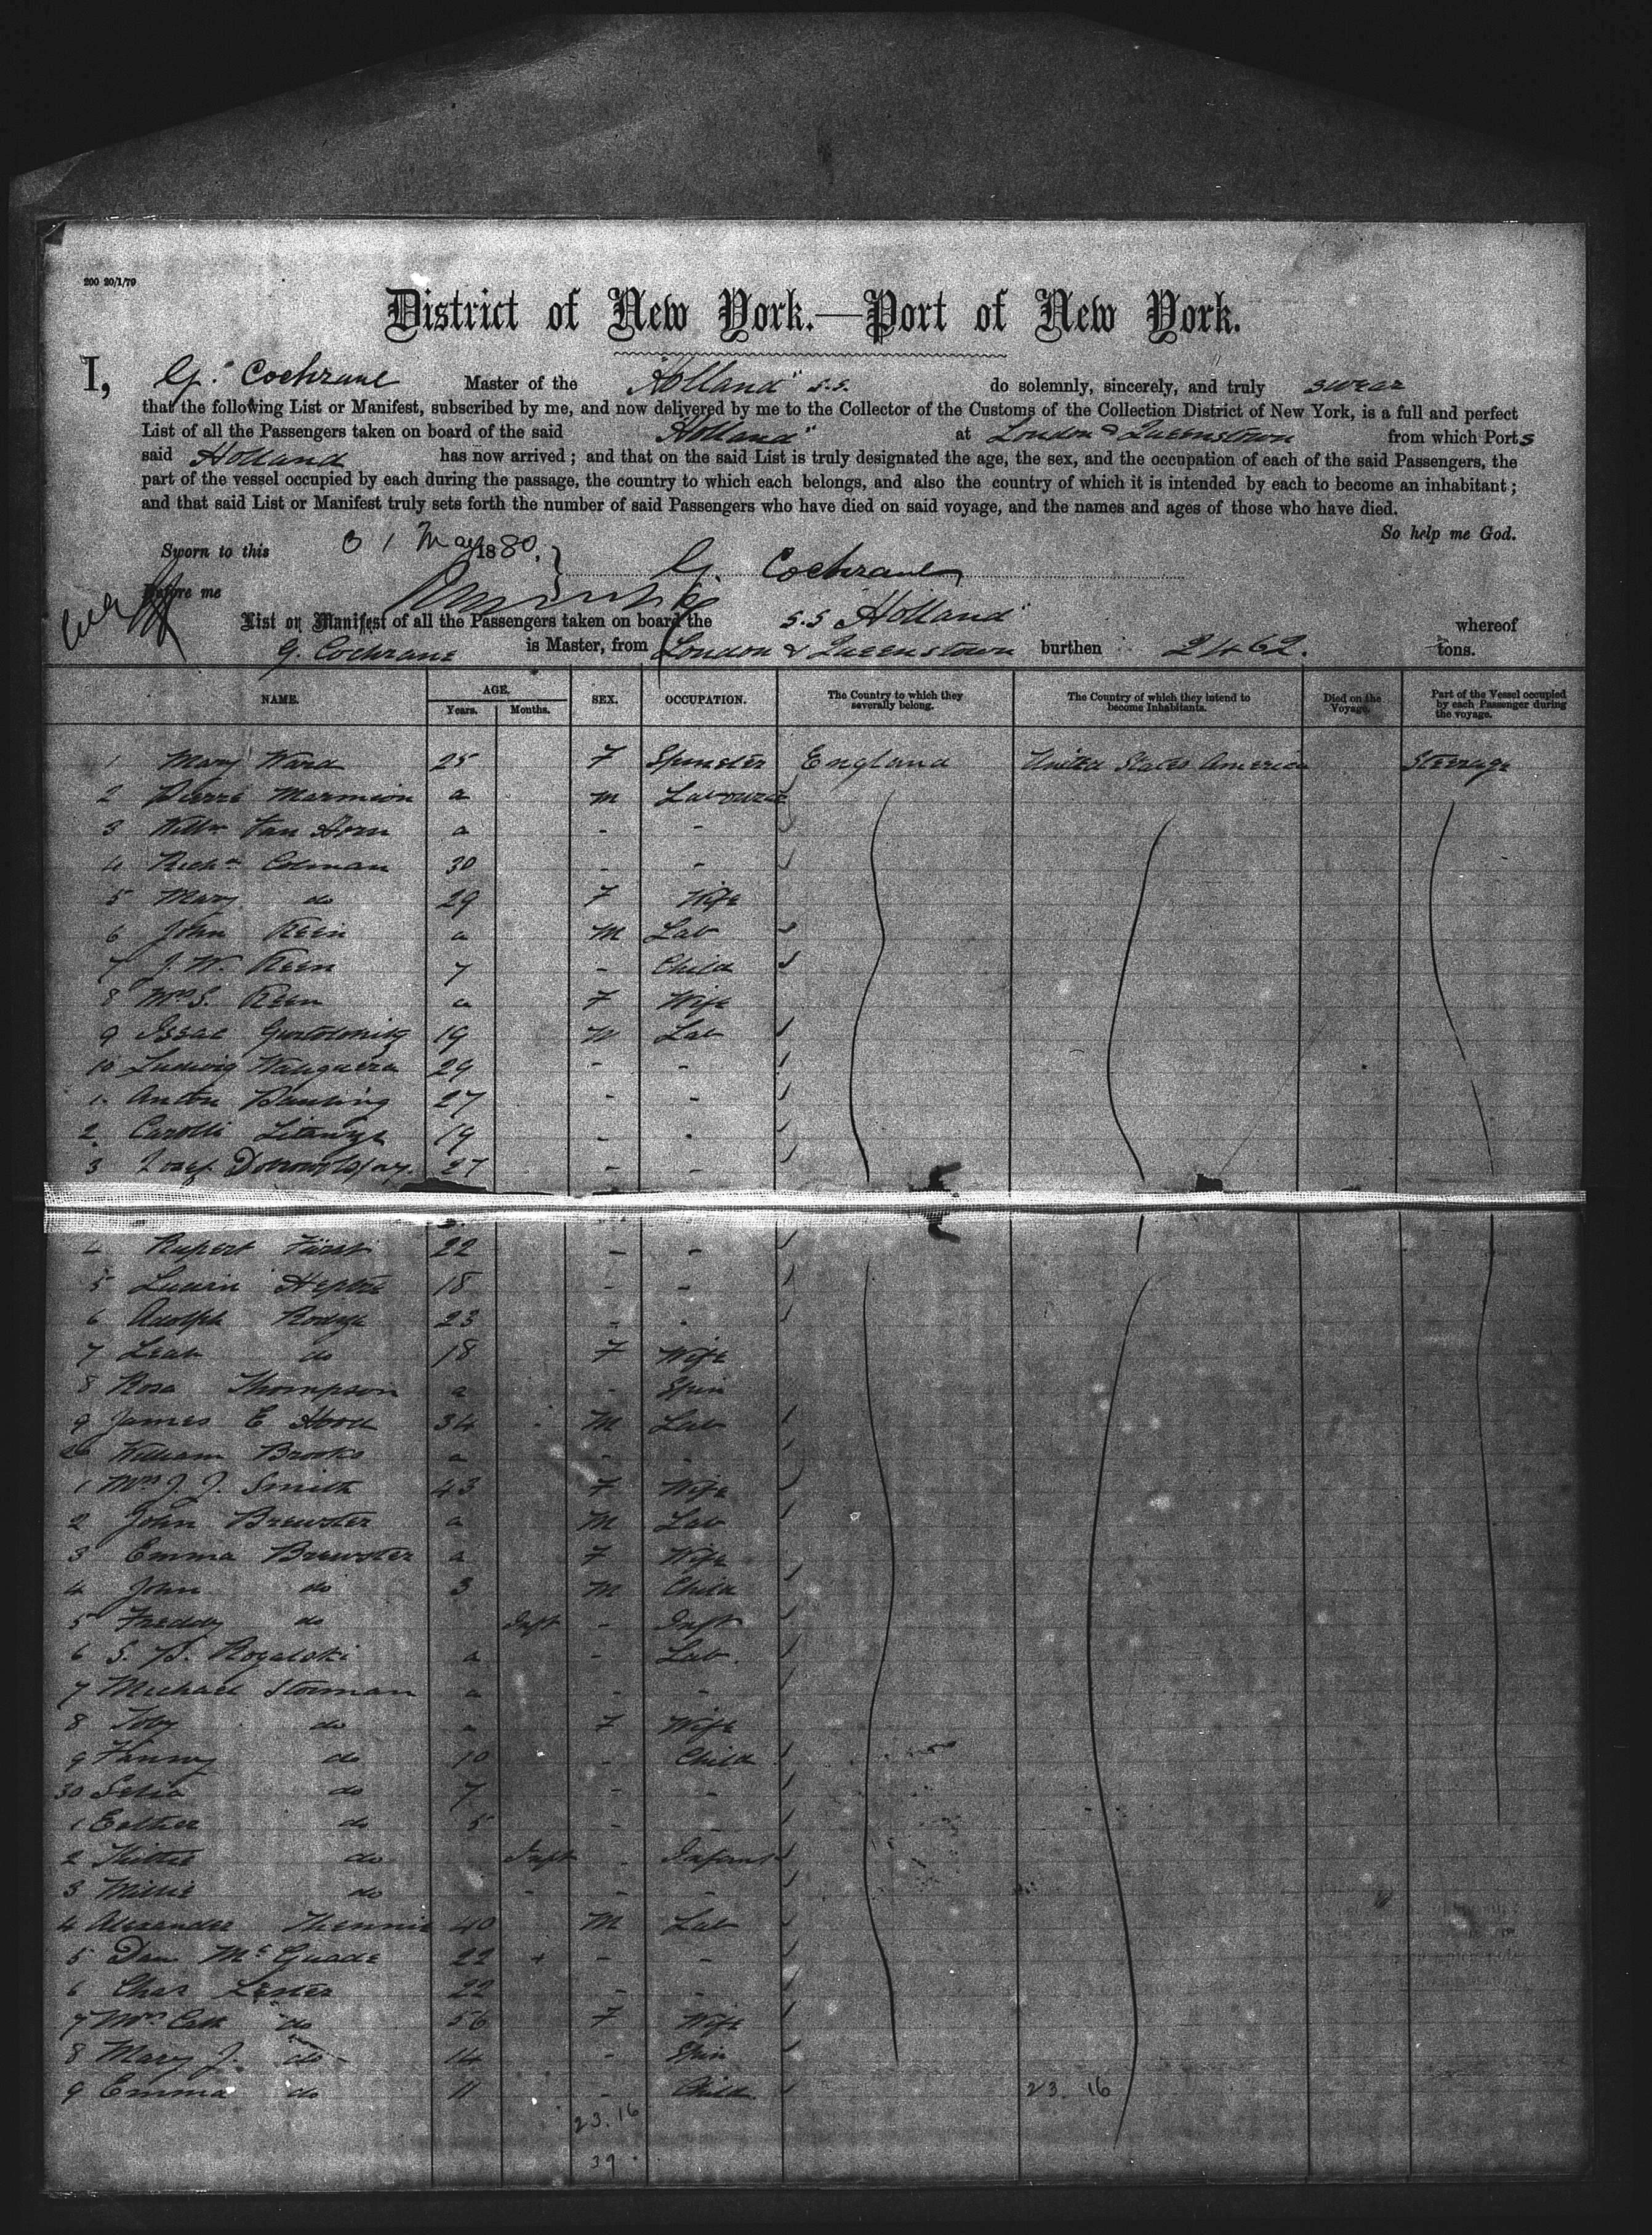 200 20/1/79
District of New York.—Port of New York.
I, G. Cochrane Master of the "Holland" s.s. do solemnly, sincerely, and truly swear
that the following List or Manifest, subscribed by me, and now delivered by me to the Collector of the Customs of the Collection District of New York, is a full and perfect
List of all the Passengers taken on board of the said Holland" at London & Queenstown from which Ports
said Holland has now arrived; and that on the said List is truly designated the age, the sex, and the occupation of each of the said Passengers, the
part of the vessel occupied by each during the passage, the country to which each belongs, and also the country of which it is intended by each to become an inhabitant;
and that said List or Manifest truly sets forth the number of said Passengers who have died on said voyage, and the names and ages of those who have died.
So help me God.
Sworn to this 31 May 1880. G. Cochrane
Before me
List or Manifest of all the Passengers taken on board the s.s Holland" whereof
G. Cochrane is Master, from London & Queenstown burthen 2462. tons.
NAME. AGE. Years. Months. SEX. OCCUPATION. The Country to which they severally belong. The Country of which they intend to become Inhabitants. Died on the Voyage. Part of the Vessel occupied by each Passenger during the voyage.
1 Mary Ward 25 F Spinster England United States America Steerage
2 Pierre Marmion a M Labourer
3 Willm Van Horn a - -
4 Richd Colman 30 - -
5 Mary do 29 F Wife
6 John Keen a M Lab
7 J. W. Keen 7 - Child
8 Mrs S. Keen a F Wife
9 Issac 19 M Lab
10 Ludwig 29 - -
1 Anton 27 - -
2 19 - -
3 Josef 27 - -
4 Rupert Fürst 22 - -
5 18 - -
6 Adolph 23 - -
7 Leah do 18 F Wife
8 Rosa Thompson a - Spin
9 James E Hood 34 M Lab
20 William Brooks a - -
1 Mrs J. J. Smith 43 F Wife
2 John Brewster a M Lab
3 Emma Brewster a F Wife
4 John do 3 M Child
5 Freddy do Inft - Inft
6 S. Rogalski a - Lab.
7 Michael Storman a - -
8 Toby do a F Wife
9 Fanny do 10 - Child
30 Selia do 7 - -
1 Esther do 5 - -
2 do Inft - Infant
3 Millie do - - -
4 Alexander 40 M Lab
5 Dan McGuade 22 - -
6 Chas Lester 22 - -
7 Mrs Cath do 56 F Wife
8 Mary J. do 14 - Spin
9 Emma do 11 - Child 23. 16
23. 16
39